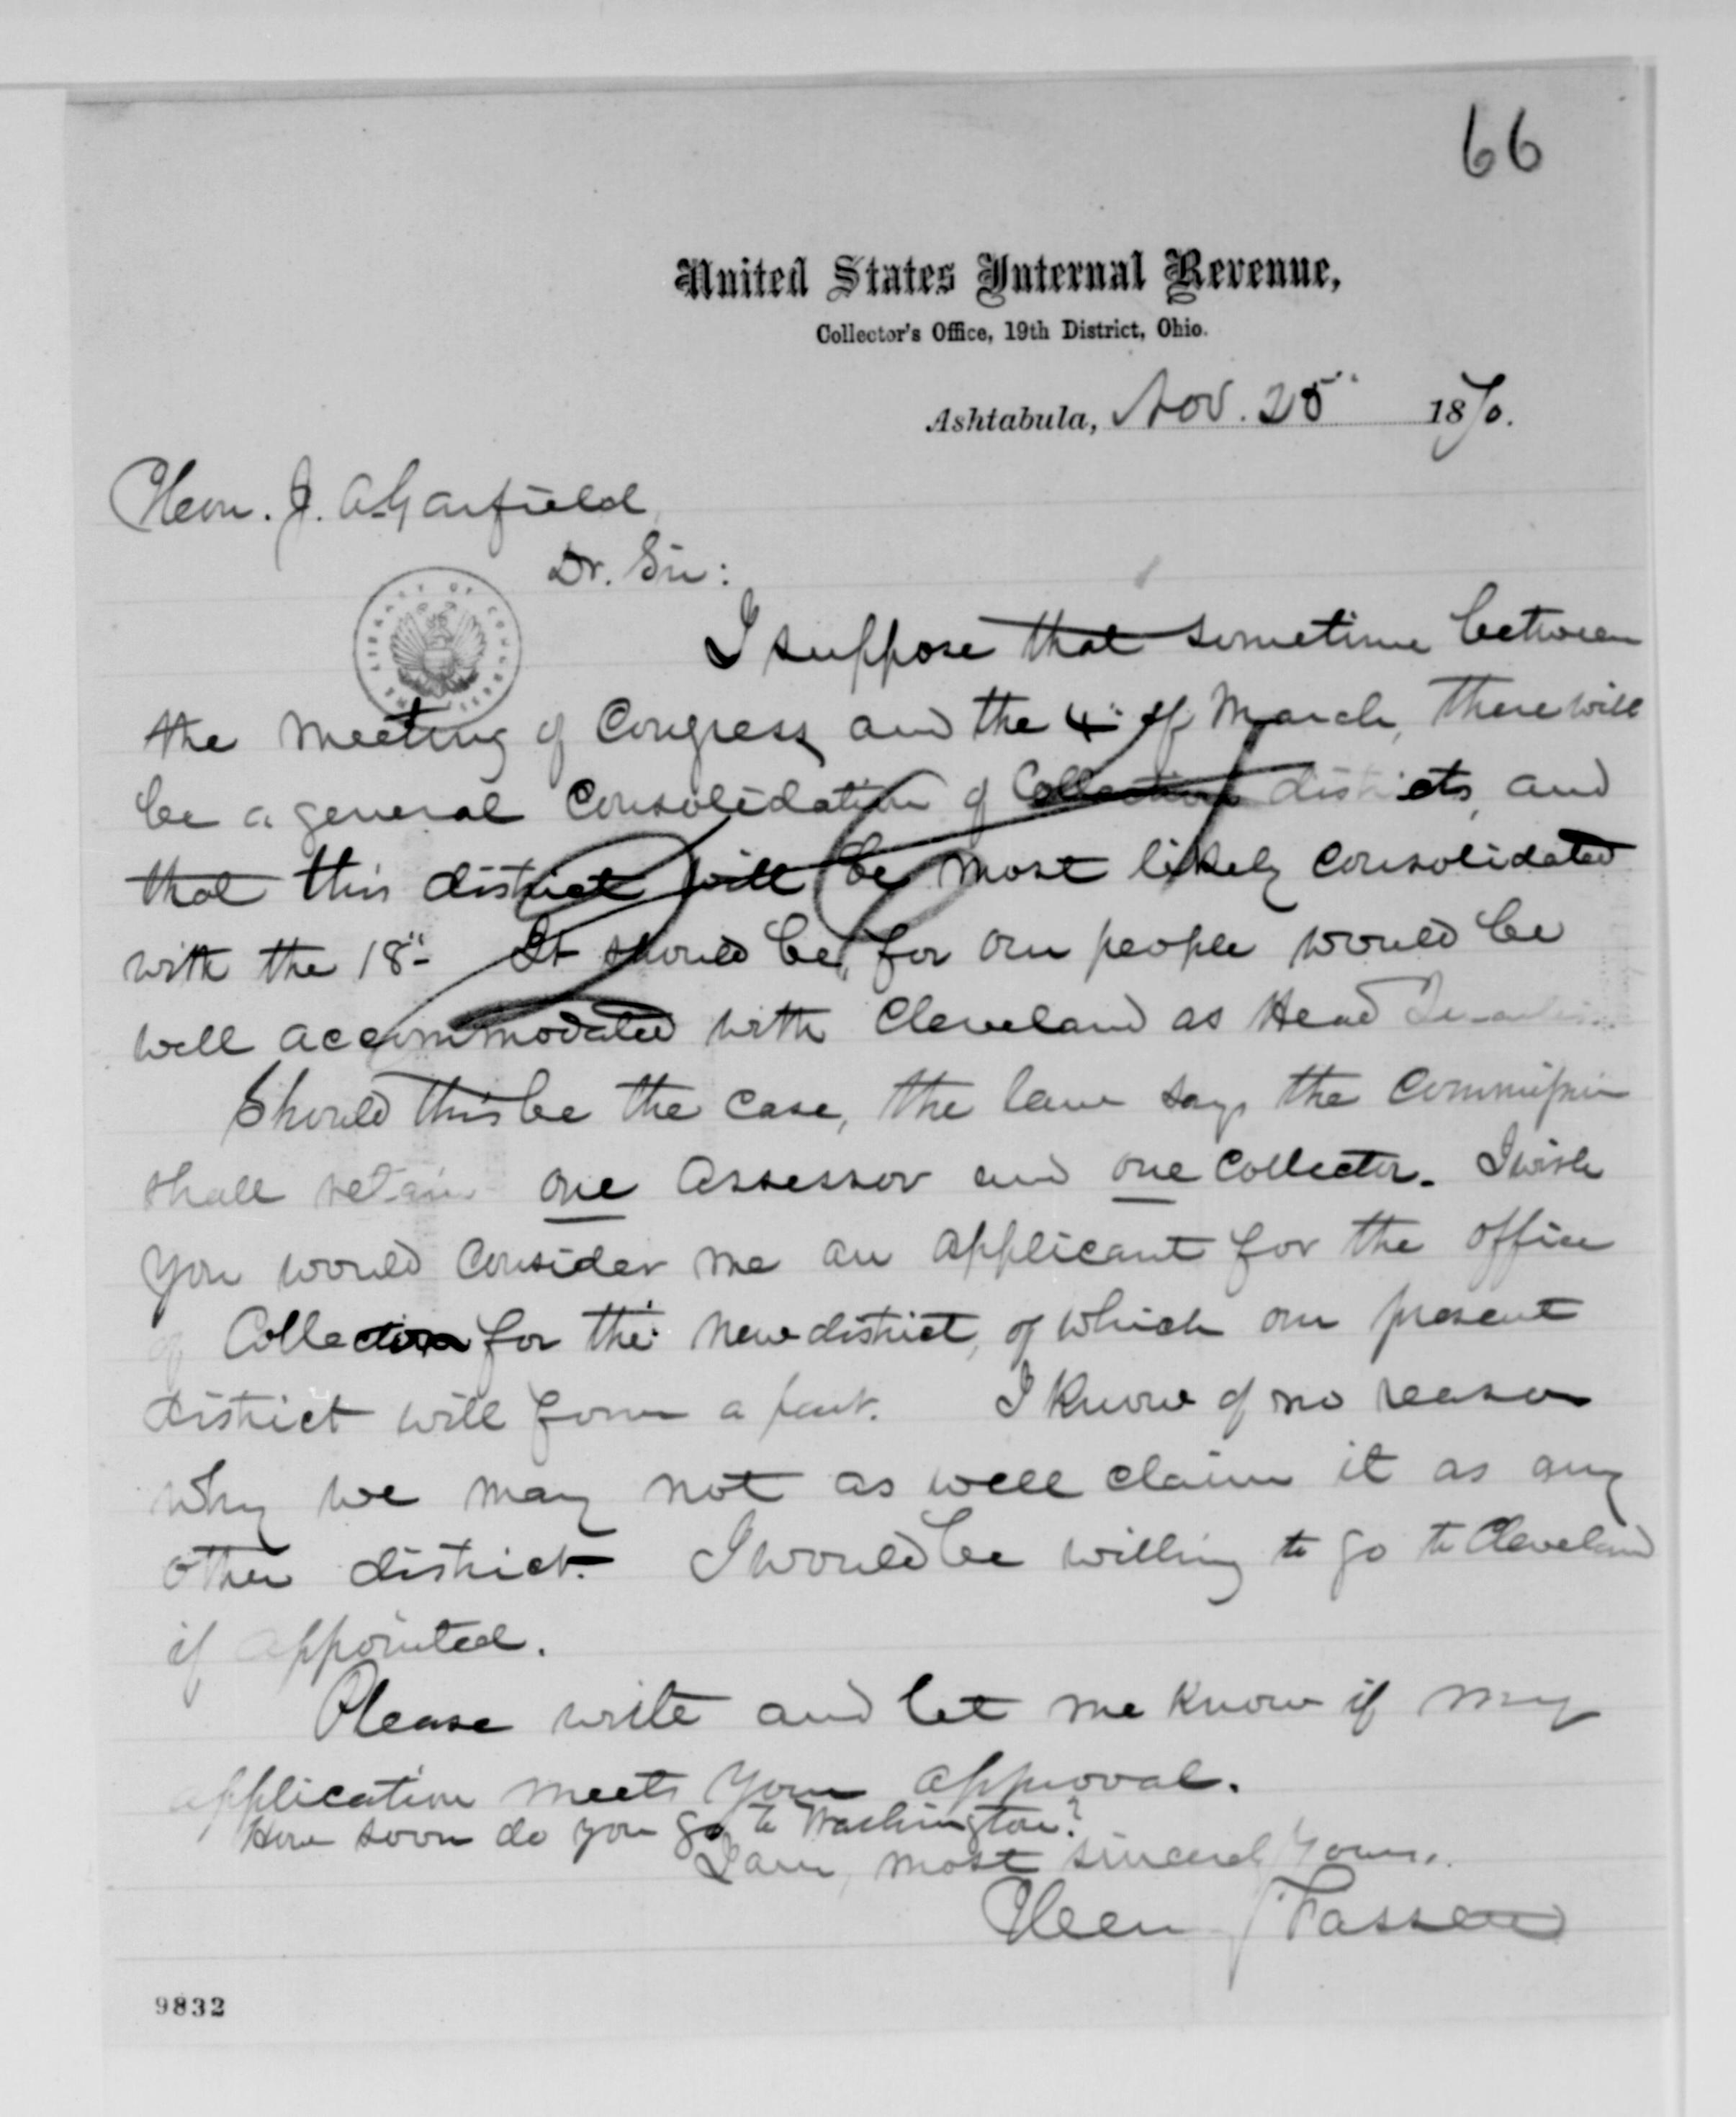 66
United States Internal Revenue,
Collector's Office, 19th District, Ohio.
Ashtabula, Nov. 25" 1870.
Hon. J. A. Garfield,
Dr. Sir:
I suppose that sometime between
the meeting of Congress and the 4" of March, there will
be a general consolidation of Collection districts, and
that this district will be most likely consolidated
with the 18"- It should be, for our people would be
well accommodated with Cleveland as Head
Should this be the case, the law says the
shall retain one Assessor and one Collector. I wish
you would consider me an applicant for the office
of Collector for the new district, of which our present
district will form a part. I know of no reason
why we may not as well claim it as any
other district. I would be willing to go to Cleveland
if appointed.
Please write and let me know if my
application meets your approval.
How soon do you go to Washington?
I am, most sincerely Yours,
Henry Fassett
9832